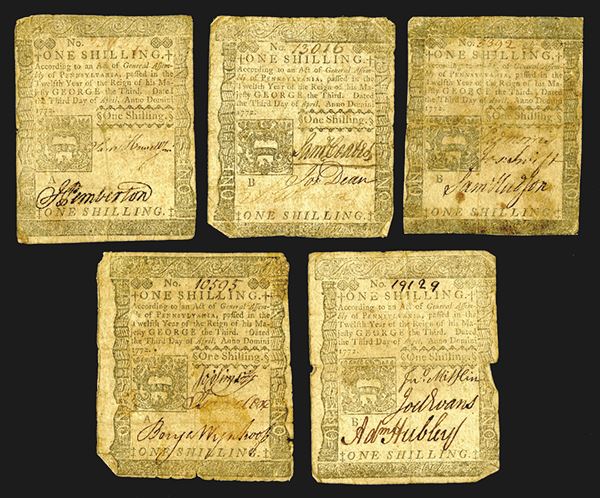 No.
ONE SHILLING.
According to an Act of General Assem-
bly of PENNSYLVANIA, passed in the
Twelfth Year of the Reign of his Ma-
jesty GEORGE the Third. Dated
the Third Day of April, Anno Domini
One Shilling.
Jas Pemberton
ONE SHILLING.
No. 13016
ONE SHILLING.
According to an Act of General Assem-
bly of PENNSYLVANIA, passed in the
Twelfth Year of the Reign of his Ma-
jesty GEORGE the Third. Dated
the Third Day of April, Anno Domini
1772.
One Shilling.
Sam Coates
B
Jos Dean
ONE SHILLING.
No.
ONE SHILLING.
According to an Act of General Assem-
bly of PENNSYLVANIA, passed in the
Twelfth Year of the Reign of his Ma-
jesty GEORGE the Third. Dated
the Third Day of April, Anno Domini
One Shilling.
B
Sam Hudson
ONE SHILLING.
No. 10595
ONE SHILLING.
According to an Act of General Assem-
bly of PENNSYLVANIA, passed in the
Twelfth Year of the Reign of his Ma-
jesty GEORGE the Third. Dated
the Third Day of April, Anno Domini
1772.
One Shilling.
A
Benja Wynkoop
ONE SHILLING.
No. 19129
ONE SHILLING.
According to an Act of General Assem-
bly of PENNSYLVANIA, passed in the
Twelfth Year of the Reign of his Ma-
jesty GEORGE the Third. Dated
the Third Day of April, Anno Domini
1772.
One Shilling.
Jno. Mifflin
B
Joel Evans
Adm Hubley
ONE SHILLING.